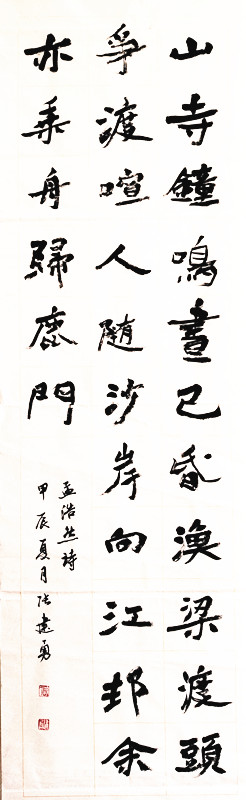 山寺鐘鳴晝已昏漁梁渡頭
爭渡喧人隨沙岸向江邨余
亦乘舟歸鹿門
孟浩然詩
甲辰夏月张建勇